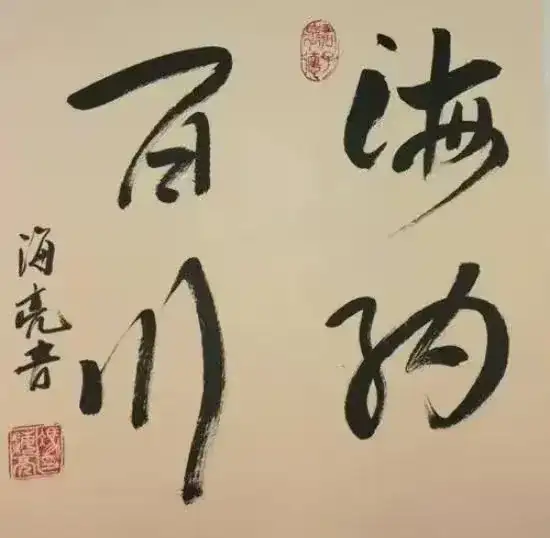 海纳
百川
海亮书